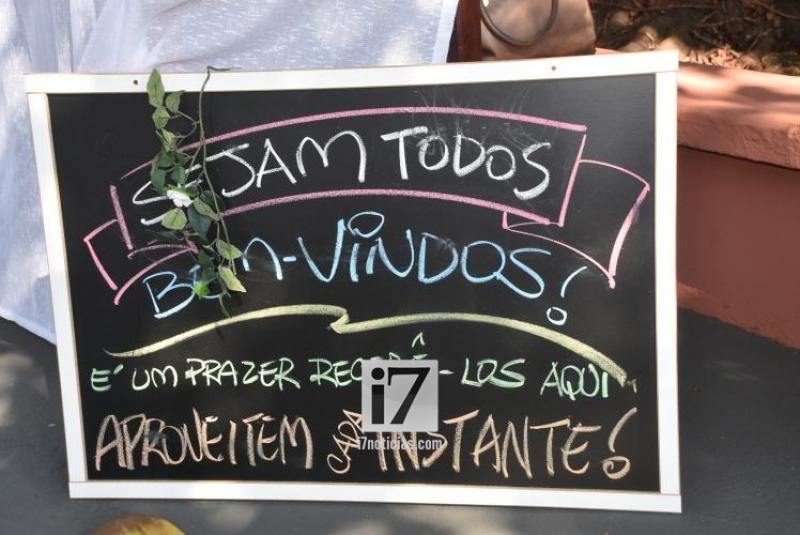 SEJAM TODOS
BEM-VINDOS!
E' UM PRAZER RECEBÊ-LOS AQUI
APROVEITEM CADA INSTANTE!
i7
i7noticias.com